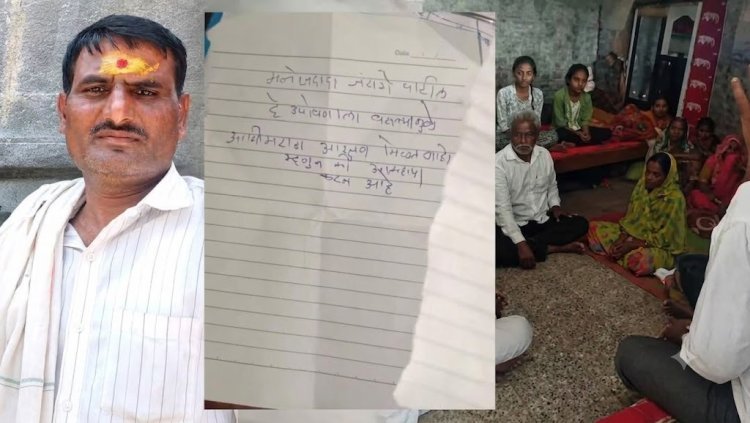 Date
मनोजदादा जरांगे पाटील
हे उपोषणाला बसल्यामुळे
आणी मराठा आरक्षण मिळत नाही
म्हणुन मी आत्महत्या
करत आहे